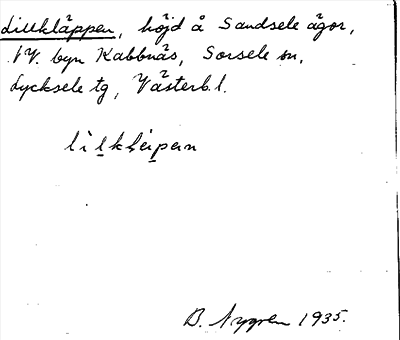 Lillkläppen, höjd å Sandsele ägor,
NV. byn Kabbnäs, Sorsele sn,
Lycksele tg, Västerb.l.
lìlkḷeipen
B. Nygren 1935.